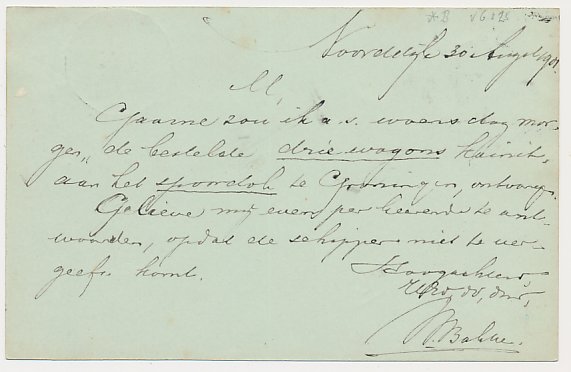 Noorddijk 30 Aug 1901
M,
Gaarne zou ik a.s. woensdag mor-
gen „ de bestelde drie wagons kainit,
aan het spoordok te Groningen, ontvangen.
Gelieve mij even per keerende te ant-
woorden, opdat de schipper niet te ver-
geefs komt.
Hoogachtend,
Bakker.